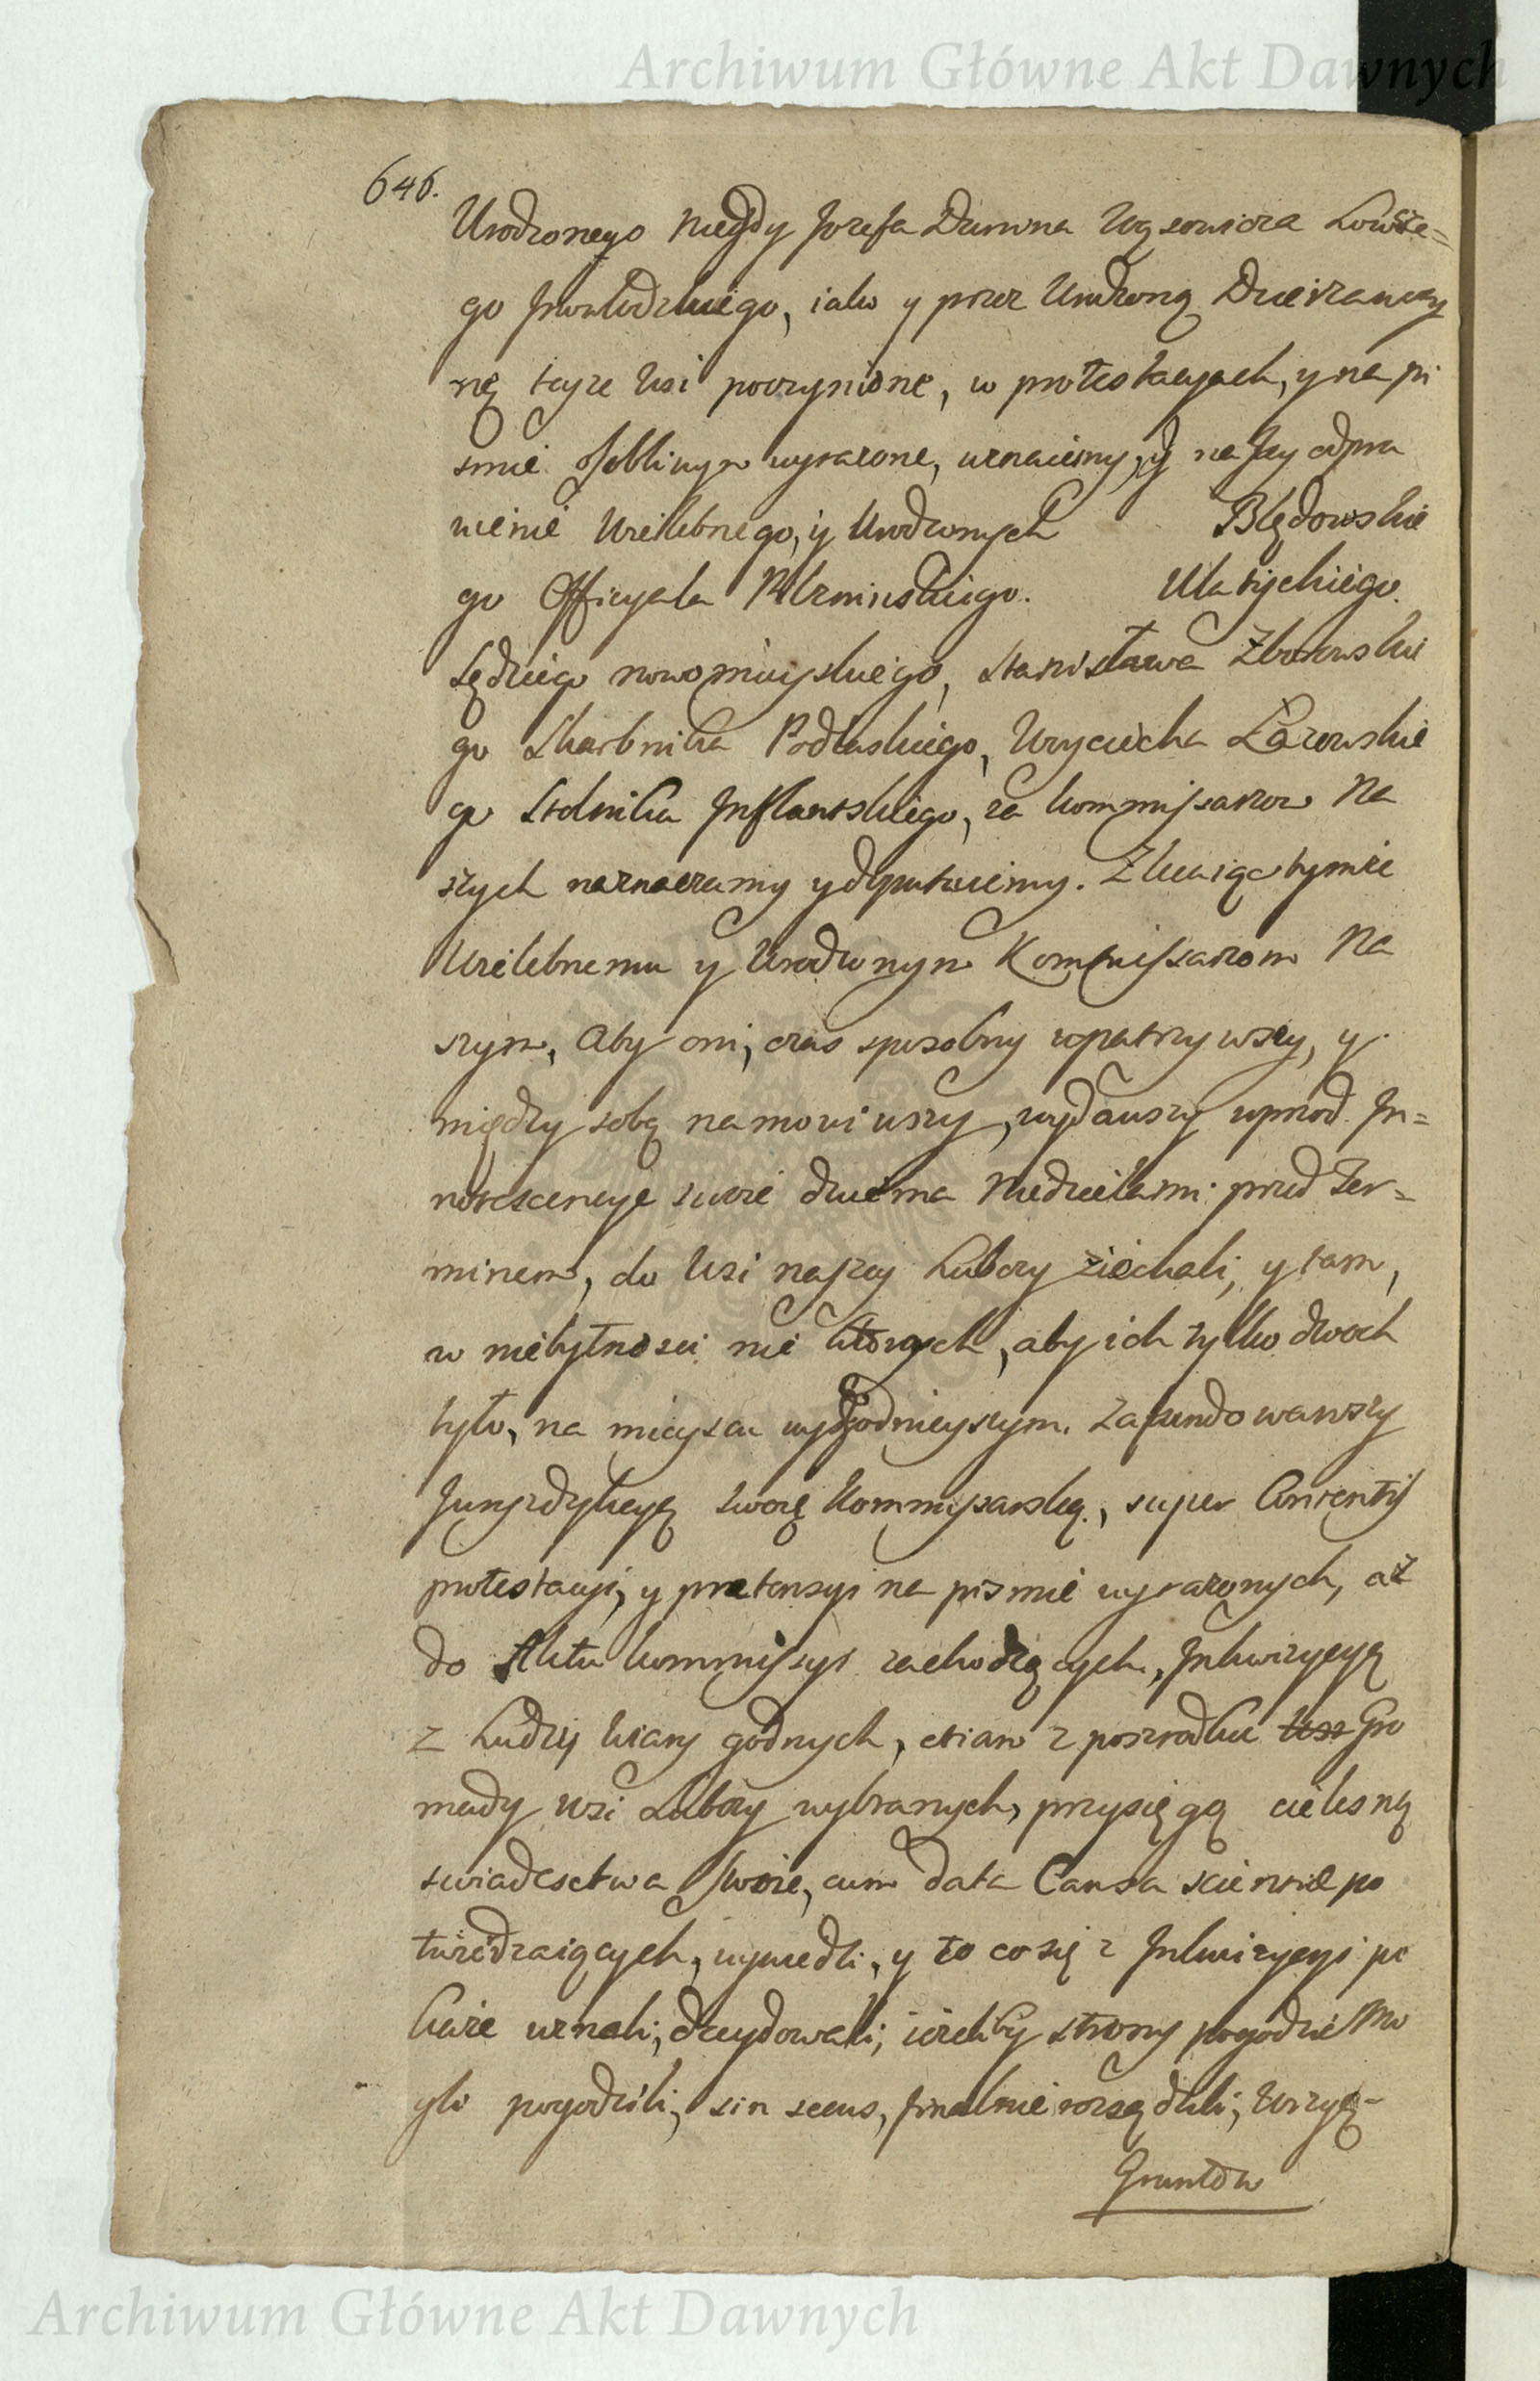 Archiwum Główne Akt Dawnych
646.
Urodzonego Niegdy Jozefa Dunina Wąsowicza Łowcze=
go Inowłodzkiego, iako y przez Urodzoną Dzierzawczy
nę teyze Wsi poczynione, w protestacyach, y na pi
smie osobliwym wyrazone, uznaiemy, y na Jey odpra
wienie Wielebnego, y Urodzonych Błędowskie
go Officyała Ulatyckiego.
Sędziego nowomieyskiego, Stanisława Zborowskie
go Skarbnika Podlaskiego, Woyciecha Łazowskie
go Stolnika Inflantskiego, za kommissarzow Na
szych naznaczamy y deputuiemy. Zlecaiąc tymze
Wielebnemu y Urodzonym Kommissarzom Na
szym, aby oni, czas sposobny upatrzywszy, y
między sobą namowiwszy, wydawszy wprzod In=
notescencye swoie dwiema Niedzielami przed Ter=
minem, do Wsi naszey Luboczy ziechali, y tam,
w niebytnosci nie ktorych, aby ich tylko dwoch
było, na mieyscu wygodnieyszym. Zafundowawszy
Juryzdykcyą swoię Kommissarską, super Contentis
protestacyi, y pretensyi na pismie wyrazonych, aż
do Aktu kommissyi zachodzących, Inkwizycyą
z Ludzi Wiary godnych, etiam z poszrodku Wsi Gro
mady wsi Luboczy wybranych, przysięgą cielesną
swiadectwa swoie, cum data Causa scientiae po
twierdzaiących, wywiedli, y to co się z Inkwizycyi po
każe uznali, decydowali, iezeliby strony pogodzić Mo
gli pogodzili, sin secus, finalnie rozsądzili, Wizyą
Gruntow
Archiwum Główne Akt Dawnych